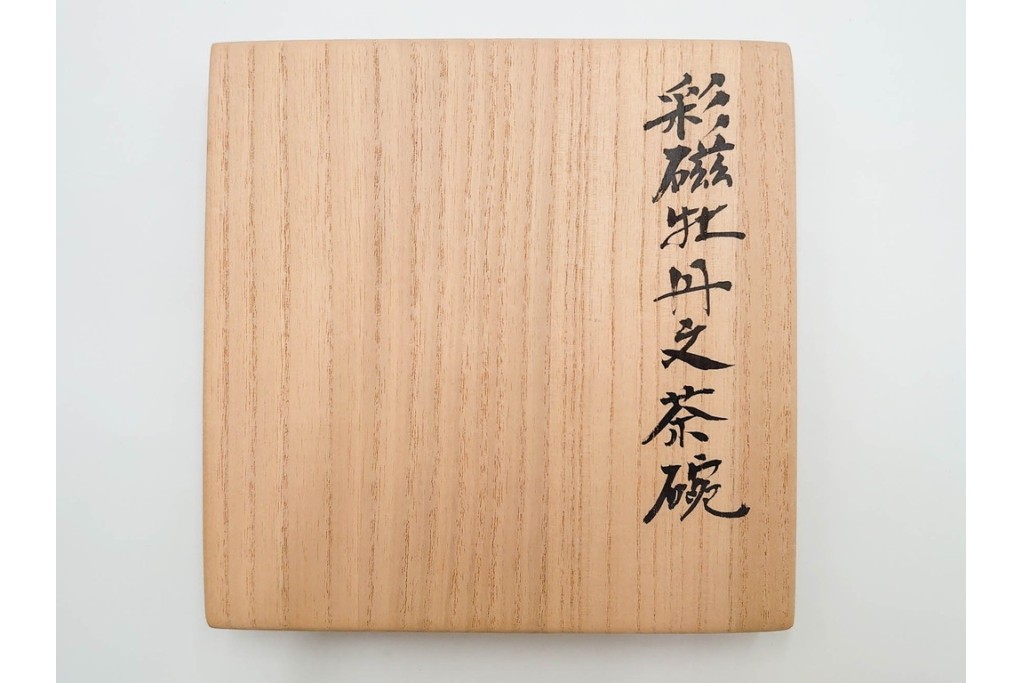 彩磁牡丹文茶碗